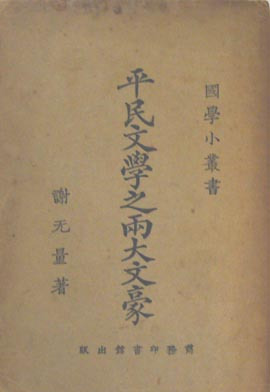 國學小叢書
平民文學之兩大文豪
謝无量著
商務印書館出版